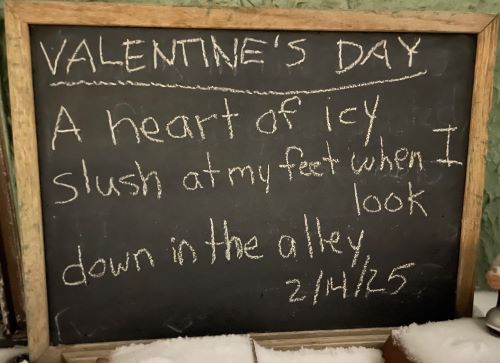 VALENTINE'S DAY
A heart of icy
slush at my feet when I
look
down in the alley
2/14/25